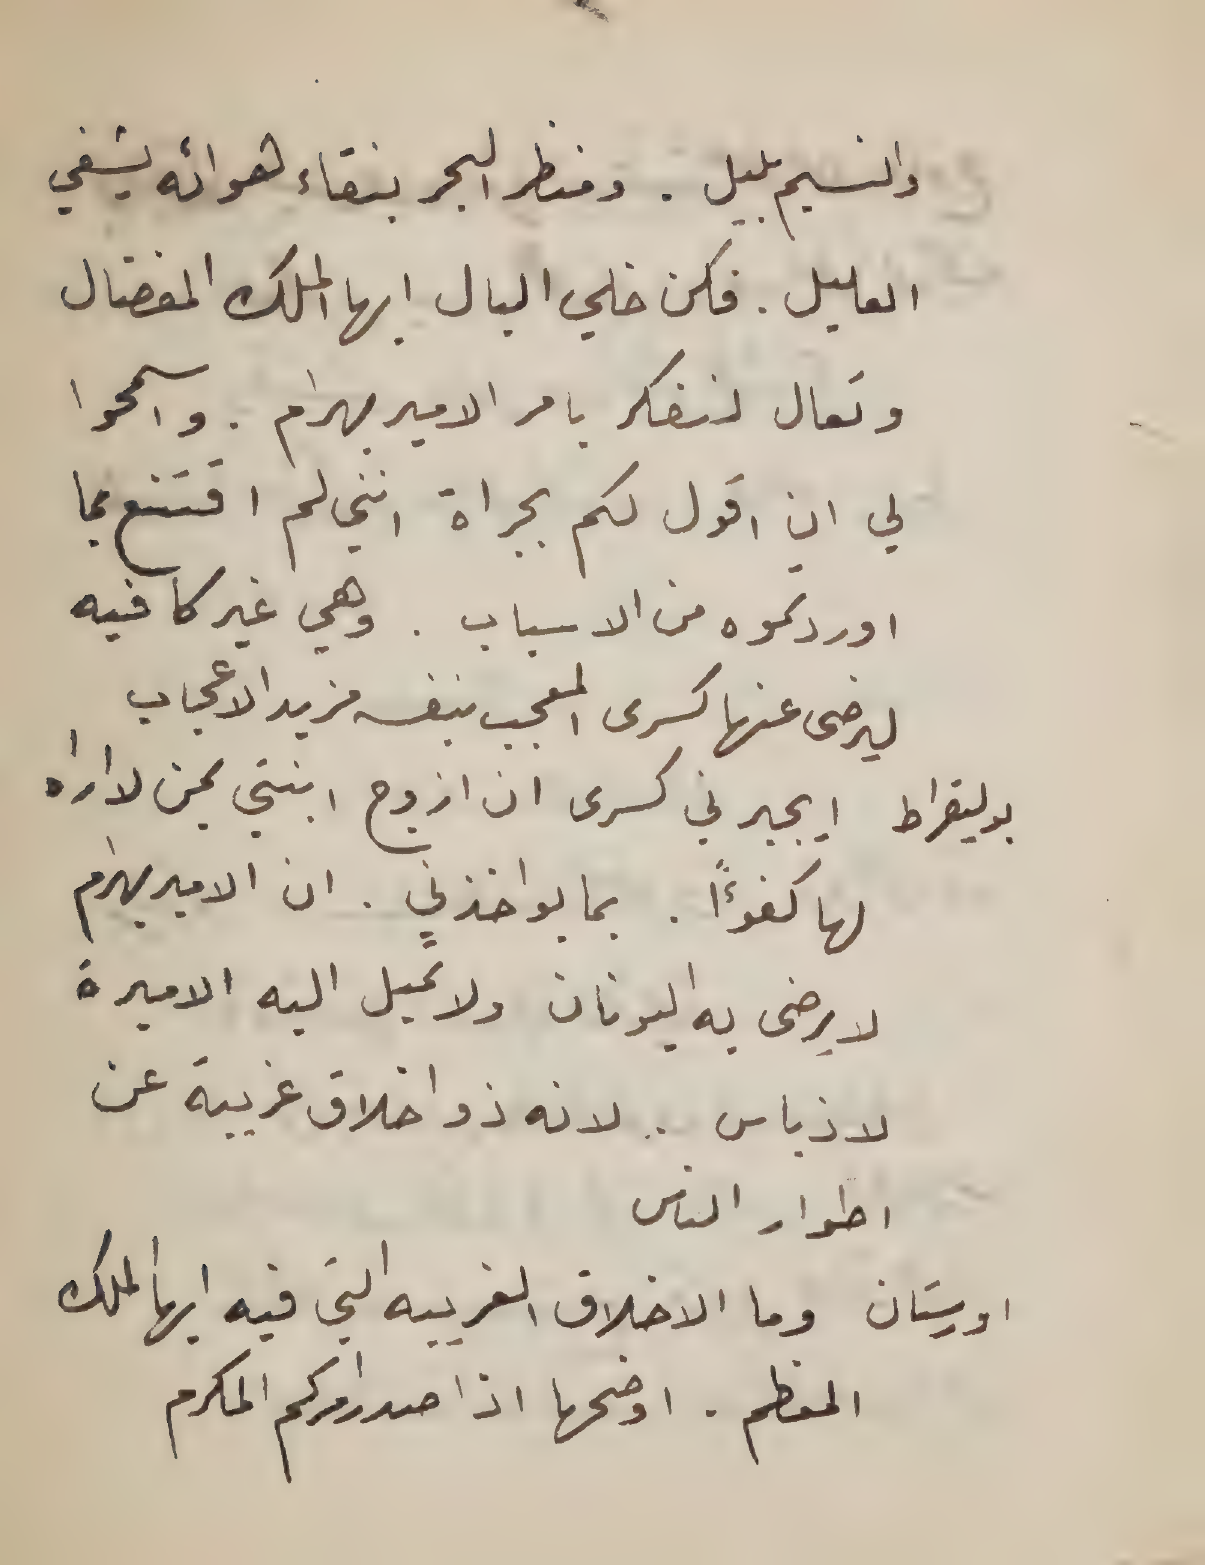 والنسيم بليل . ومنظر البحر بنقاء هوائه يشفي
العليل . فكن خلي البال ايها الملك المفضال
وتعال لنفتكر بامر الامير بهرام . واسمحوا
لي ان اقول لكم بجراة انني لم اقتنع بما
اوردتموه من الاسباب . وهي غير كافيه
ليرضى عنها كسرى المعجب بنفسه مزيد الاعجاب
بوليقراط ايجبرني كسرى ان ازوج ابنتي بمن لا اراه
لها كفوءًا . بما يواخذني . ان الامير بهرام
لا يرضى به اليونان ولا تميل اليه الاميرة
لاذياس . لانه ذو اخلاق غريبة عن
اطوار الناس
اوريستان وما الاخلاق الغريبه التي فيه ايها الملك
المعظم . اوضحها اذا صدر امركم المكرم